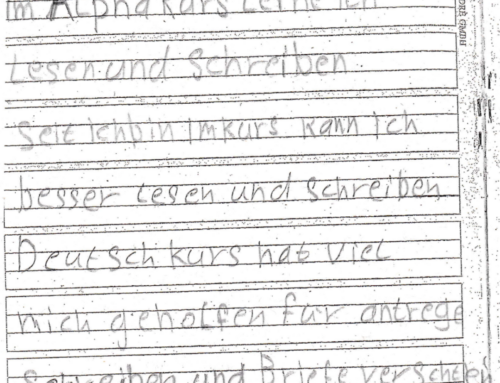 im Alphakurs Lerne ich
Lesen und Schreiben
Seit ich bin im kurs kann ich
besser Lesen und schreiben
Deutsch kurs hat viel
mich geholfen für antrege
Schreiben und Briefe verscheh